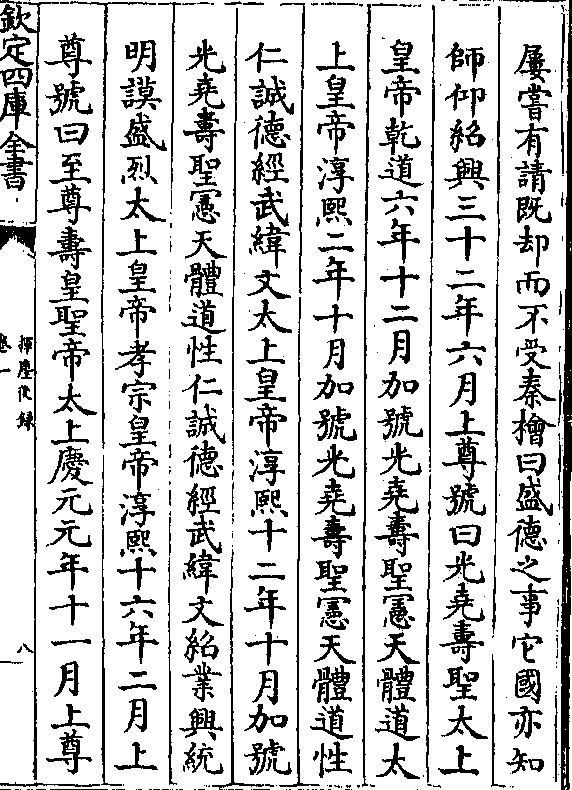 屢嘗有請既却而不受秦檜曰盛德之事它國亦知
師仰紹興三十二年六月上尊號曰光堯壽聖太上
皇帝乾道六年十二月加號光堯壽聖憲天體道太
上皇帝淳熙二年十月加號光堯壽聖憲天體道性
仁誠德經武緯文太上皇帝淳熙十二年十月加號
光堯壽聖憲天體道性仁誠德經武緯文紹業興統
明謨盛烈太上皇帝孝宗皇帝淳熙十六年二月上
尊號曰至尊壽皇聖帝太上慶元元年十一月上尊
欽定四庫全書
揮麈後錄
卷一
八